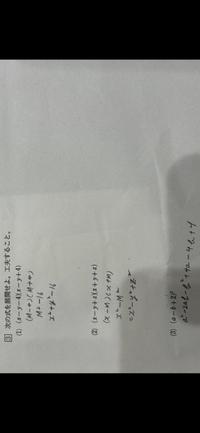 3 次の式を展開せよ。工夫すること。
(1) (x−y−4)(x−y+4)
(M−4)(M+4)
M²−16
x²+y²−16
(2) (x−y+z)(x+y+z)
(x−M)(x+M)
x²−M²
=x²−y²+z²
(3) (a−b+2)²
a²−2ab−b²+4a−4b+4